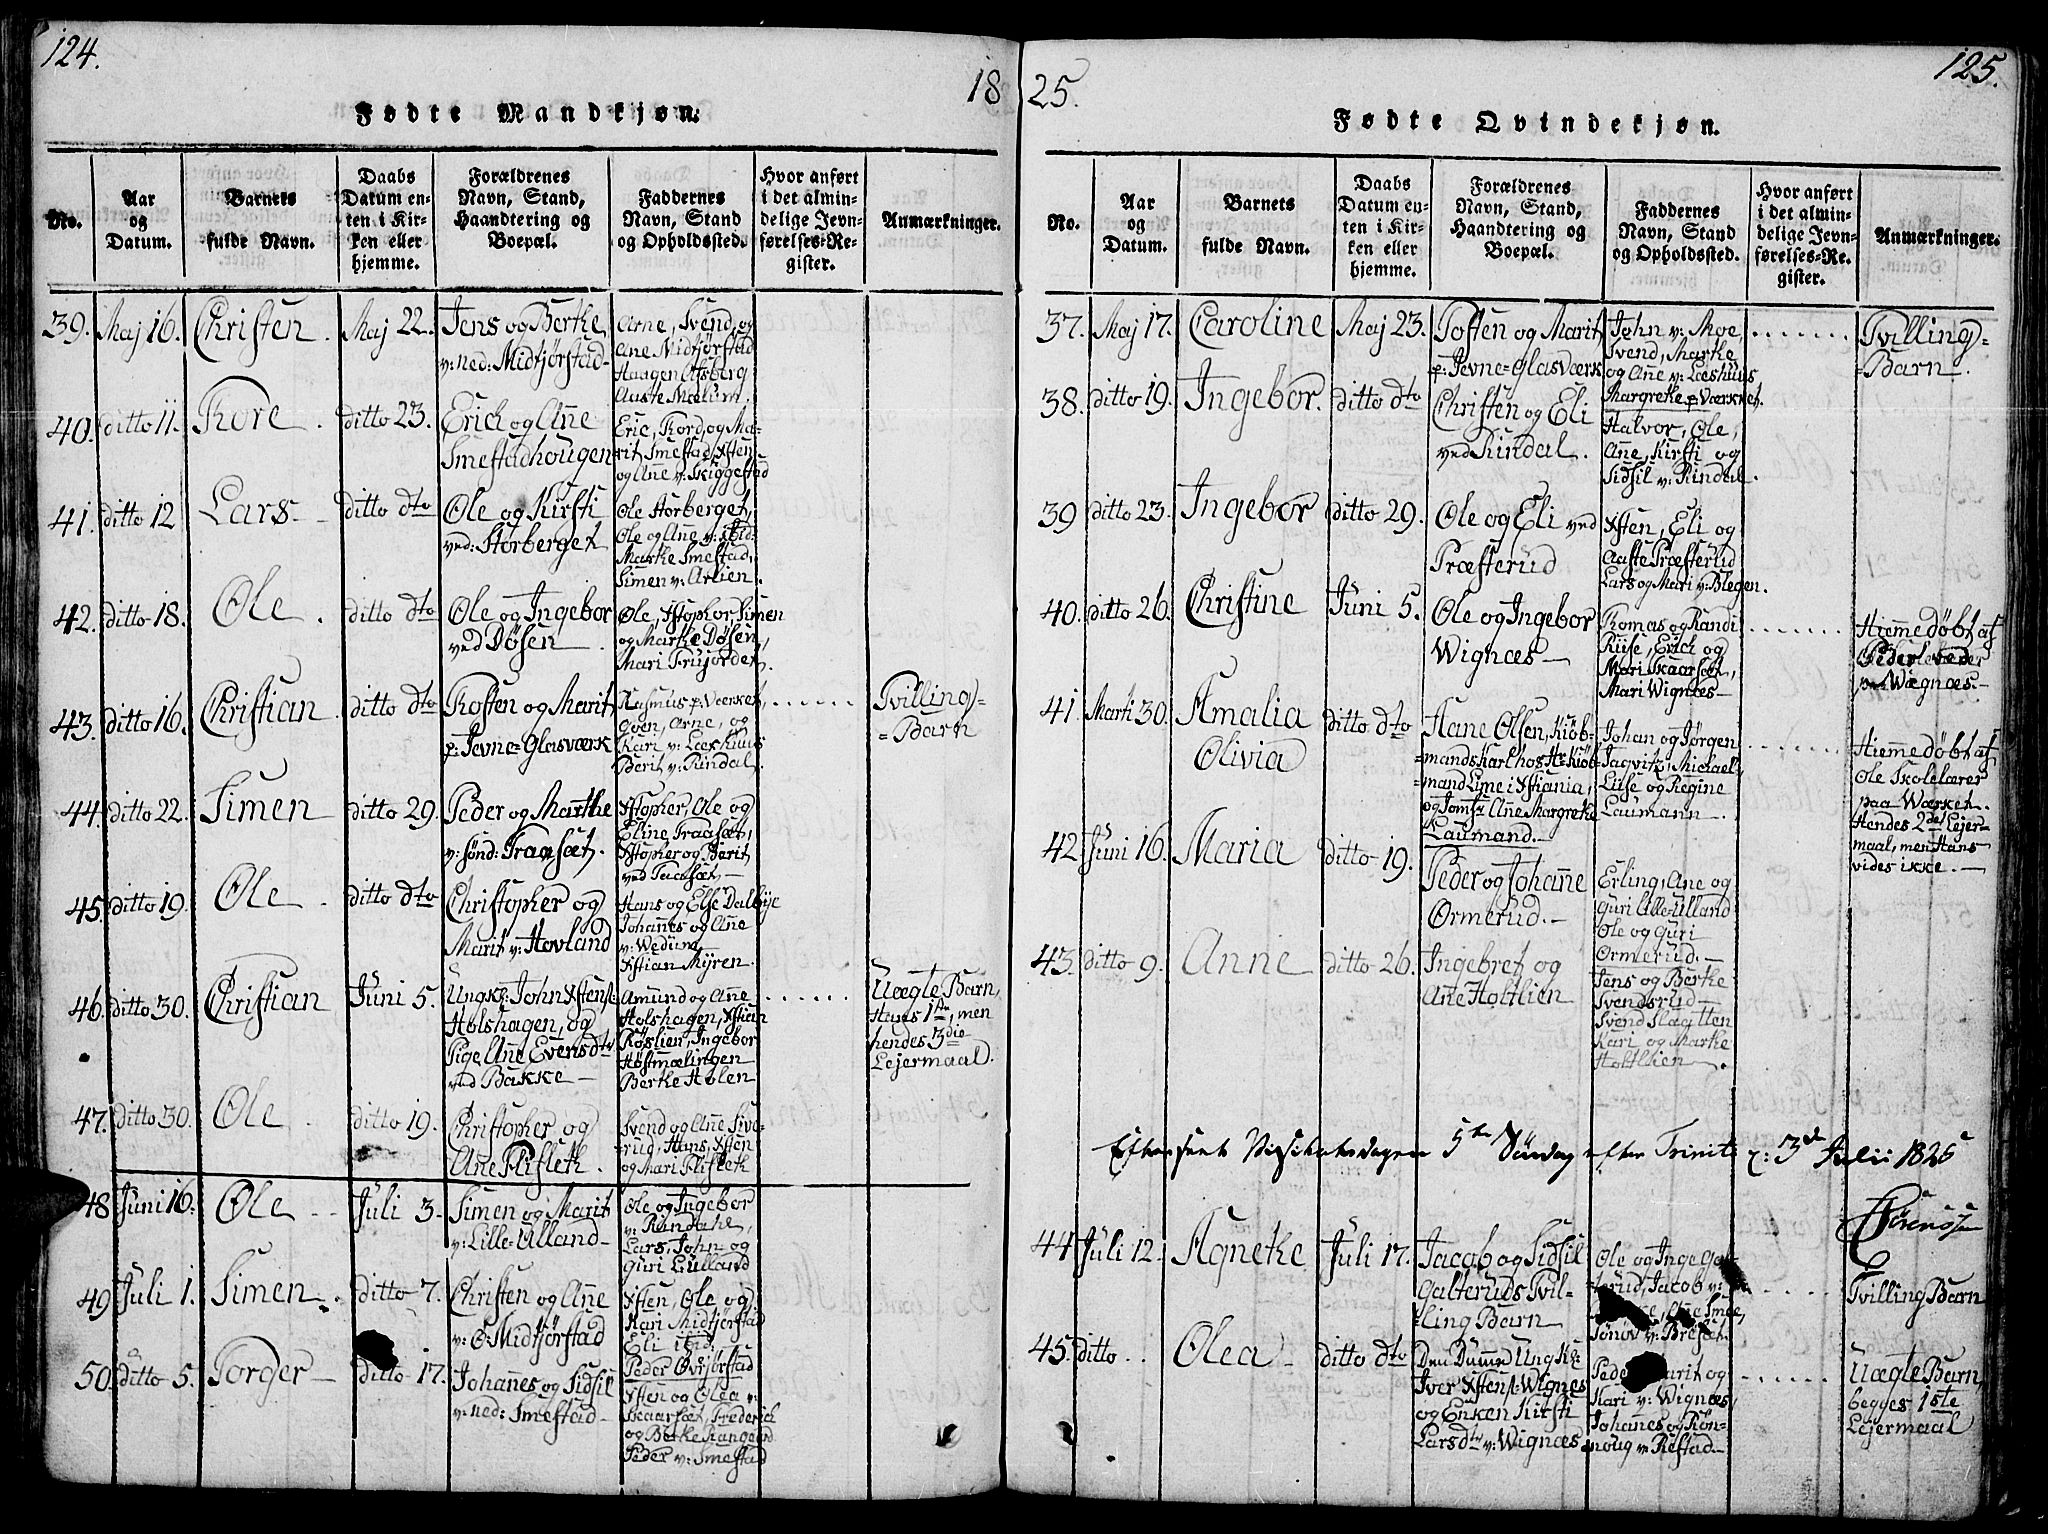 124.
18
Fødte Mandkjøn.
No.
Aar
og
Datum.
Barnets
fulde Navn.
Daabs
Datum en-
ten i Kir-
ken eller
hjemme.
Forældrenes
Navn, Stand,
Haandtering og
Boepæl.
Faddernes
Navn, Stand
og Opholdssted.
Hvor anført
i det almin-
delige Jevn-
førelses-Re-
gister.
Anmærkninger.
39. Maj 16. Christen. Maj 22.
Jens og Berthe
v: ned: Midtjørstad-
Arne, Svend, og
Ane Midtjørstad
Haagen Olsberg
Aaste Mælum.
40. ditto 11. Thore. ditto 23.
Erich og Anne
Smestadhougen
Eric, Thord, og Ma-
rit Smestad, Xsten
og Anne v: Skiggestad
41. ditto 12 Lars. ditto dto
Ole og Kirsti
ved: Storberget
Ole Storberget,
Ole og Anne v:
Marthe Smestad,
Simen v: Arlien.
42. ditto 18. Ole. ditto dto
Ole og Ingebor
ved Døsen.
Ole, Xstophor, Simen
og Marthe Døsen,
Mari Frujordet.
43. ditto 16. Christian. ditto dto
Thosten og Marit,
p: Jevne=Glasværk
Rasmus p: Værket,
Goen, Arne, og
Kari v: Leeshuus
Berit v: Rindal.
Tvilling=
=Barn
44. ditto 22. Simen ditto 29.
Peder og Marthe
v: sønd: Traasæt.
Xstopher, Ole og
Eline Traasæt,
Xstopher og Berit
ved
45. ditto 19. Ole. ditto dto
Christopher og
Marit v: Hovland
Hans og Else Dalbye
Johannes og Anne
v: Wedum,
Xstian Myren.
46. ditto 30. Christian Juni 5.
Ungk: John Xstens:
Holshagen, og
Pige Anne Evensdtr
ved Bakke-
Amund og Anne
Holshagen, Xstian
Røslien, Ingebor
Høstmælingen
Berthe Holen
Uægte Barn,
Hans 1ste, men
hendes 3die
Lejermaal.
47. ditto 30. Ole. ditto 19.
Christopher og
Ane Flisleth.
Svend og Anne Sive-
rud, Hans, Xsten
og Mari Flisleth
48 Juni 16. Ole Juli 3.
Simen og Marit
v: Lille=Ulland-
Ole og Ingebor
v: Rindahl,
Lars, John og
Guri L:Ulland
49 Juli 1. Simen. ditto 7.
Christen og Anne
v: Ø: Midtjørstad
Xsten, Ole og
Kari Midtjørstad
Eli ibid.
50. ditto 5. Torger ditto 17.
Johannes og Sidsil
v: ned: Smestad-
Peder Øvrjørstad
Xsten og Olea v:
Skaarsæt, Frederich
og Berthe Kangerud
Peder v: Smestad
25.
125.
Fødte Qvindekjøn.
No.
Aar
og
Datum.
Barnets
fulde Navn.
Daabs
Datum en-
ten i Kir-
ken eller
hjemme.
Forældrenes
Navn, Stand,
Haandtering og
Boepæl.
Faddernes
Navn, Stand
og Opholdssted.
Hvor anført
i det almin-
delige Jevn-
førelses-Re-
gister.
Anmærkninger.
37. Maj 17. Caroline Maj 23.
Tosten og Marit,
p: Jevne=Glasværk
John v: Moe,
Svend, Marthe
og Anne v: Leeshuus
Margrethe p: Værket.
Tvilling=
=Barn.
38. ditto 19. Ingebor. ditto dto
Christen og Eli
ved Rindal.
Halvor, Ole,
Anne, Kirsti og
Sidsil v: Rindal.
39 ditto 23. Ingebor ditto 29.
Ole og Eli ved
Præsterud
Xsten, Eli og
Aaste Præsterud
Lars og Mari v: Blegen.
40. ditto 26. Christine Juni 5.
Ole og Ingebor
Wignæs-
Thomas og Randi
Riise, Erich og
Mari Skaarsæt,
Mari Wignæs-
Hiemmedøbt af
p: Wægnæs-
41. Marti 30. Amalia
Olivia ditto dto
Hane Olsen, Kiøb-
=mandskarl hos Hr Kiøb-
=mand Lyne i Xstiania,
og Jomfr Anne Margrethe
Laumand.-
Johan og Jørgen
Jagvitz, Michael,
Luise og Regine
Laumann.
Hiemmedøbt af
Ole Skolelærer
paa Værket.
Hendes 2det Lejer-
maal, men Hans
vides ikke.-
42 Juni 16. Maria ditto 19.
Peder og Johanne
Ormerud.-
Erling, Ane og
Guri Lille=Ulland
Ole og Guri
Ormerud.-
43. ditto 9. Anne ditto 26.
Ingebret og
Ane Holtlien
Jens og Berthe
Svendsrud-
Svend Slagtten
Kari og Marthe
Holtlien.
Efterseet Visitatsdagen 5te Søndag efter Trinit: 3d Julii 1825
44 Juli 12. Agnethe Juli 17.
Jacob og Sidsil
Galteruds Tvil-
=ling Barn
Ole og Inge Gal-
=terud, Jacob v:
Anne Smee,
Sønøv v: Bresæt.
Tvilling Barn
45. ditto Olea ditto dto
Den Dumme Ungk:
Iver Xstens: Wignes
og Enken Kirsti
Larsdtr v: Wignæs
Peder, Marit og
Kari v: Wignæs,
Johannes og Røn-
noug v: Restad-
Uægte Barn,
begges 1ste
Lejermaal